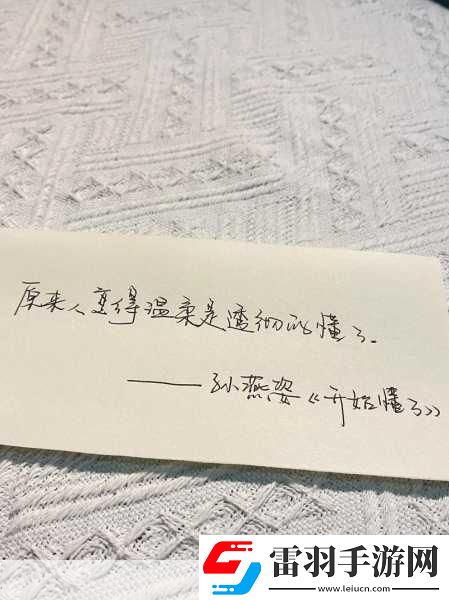 原来人变得温柔是透彻的懂了.
——孙燕姿《开始懂了》
雷羽手游网
www.leiucn.com